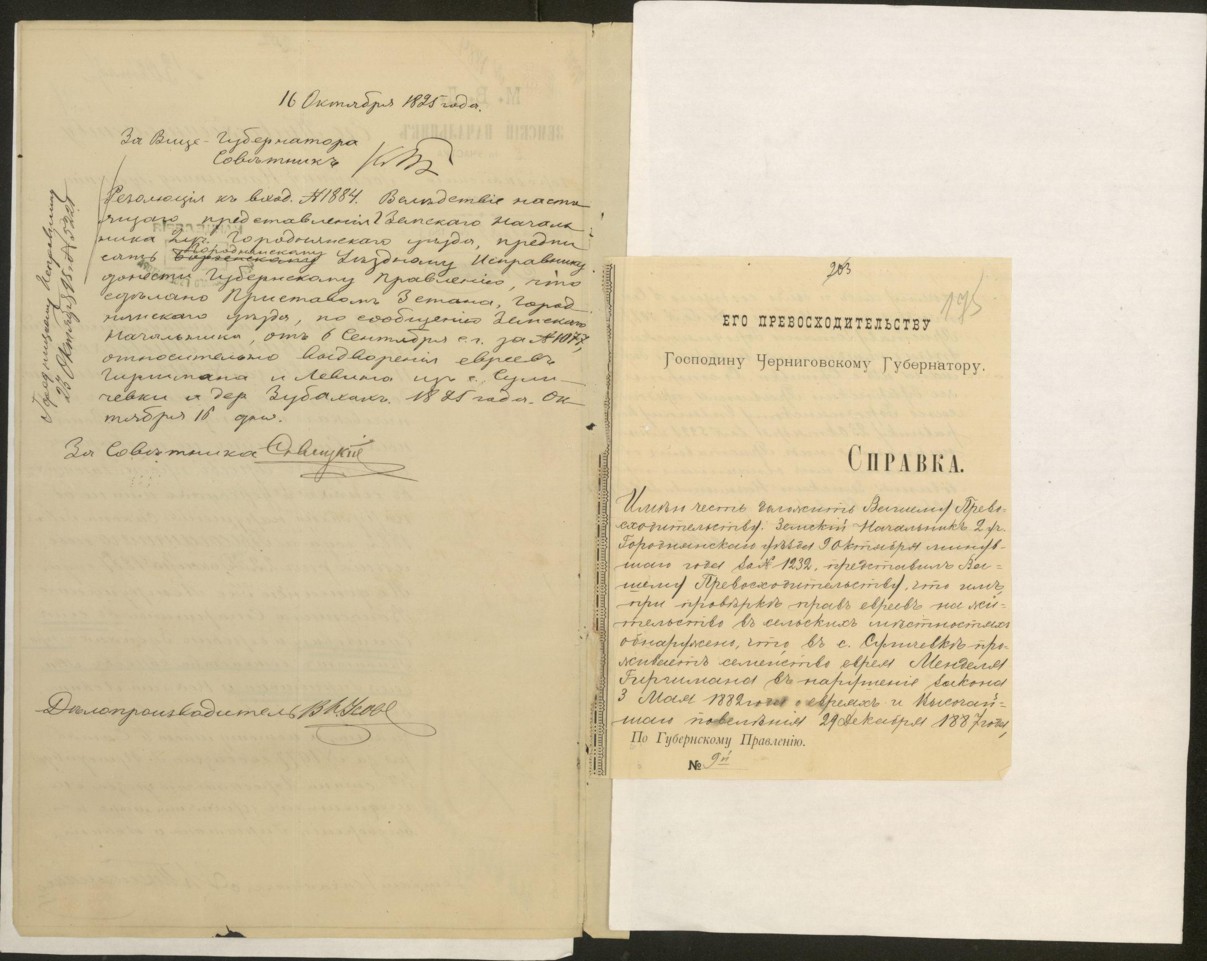 16 Октября 1895 года.
За Вице-Губернатора
Совѣтникъ
Резолюція къ вход. №1884. Вслѣдствіе насто-
ящаго представленія Земскаго Началь-
ника 2 уч. Городнянскаго уѣзда, предпи-
сать Городнянскому Уѣздному Исправнику
донести Губернскому Правленію, что
сдѣлано Приставомъ 3 стана, Город-
нянскаго уѣзда, по сообщенію Земскаго
Начальника, отъ 6 Сентября с.г. за №1077,
относительно выдворенія евреевъ
Гиршмана и Левина изъ с.
и дер. Зубахахъ. 1895 года. Ок-
тября 16 дня.
За Совѣтника
Дѣлопроизводитель
Городницкому Исправнику
23 Октября 95 г. № 5225
203
195
ЕГО ПРЕВОСХОДИТЕЛЬСТВУ
Господину Черниговскому Губернатору.
СПРАВКА.
Имѣю честь доложить Вашему Прево-
сходительству: Земскій Начальникъ 2 уч.
Городнянскаго уѣзда 9 Октября минув-
шаго года за № 1232, представилъ Ва-
шему Превосходительству, что имъ,
при провѣркѣ правъ евреевъ на жи-
тельство въ сельскихъ мѣстностяхъ
обнаружено, что въ с. про-
живаетъ семейство еврея Менделя
Гиршмана въ нарушеніе закона
3 Мая 1882 года о евреяхъ и Высочай-
шаго повелѣнія 29 Декабря 1887 года,
По Губернскому Правленію.
№